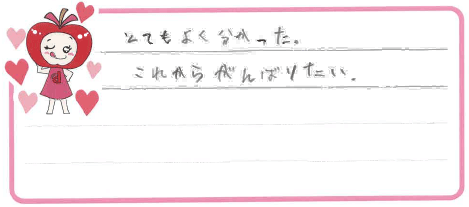 とてもよく分かった。
これからがんばりたい。